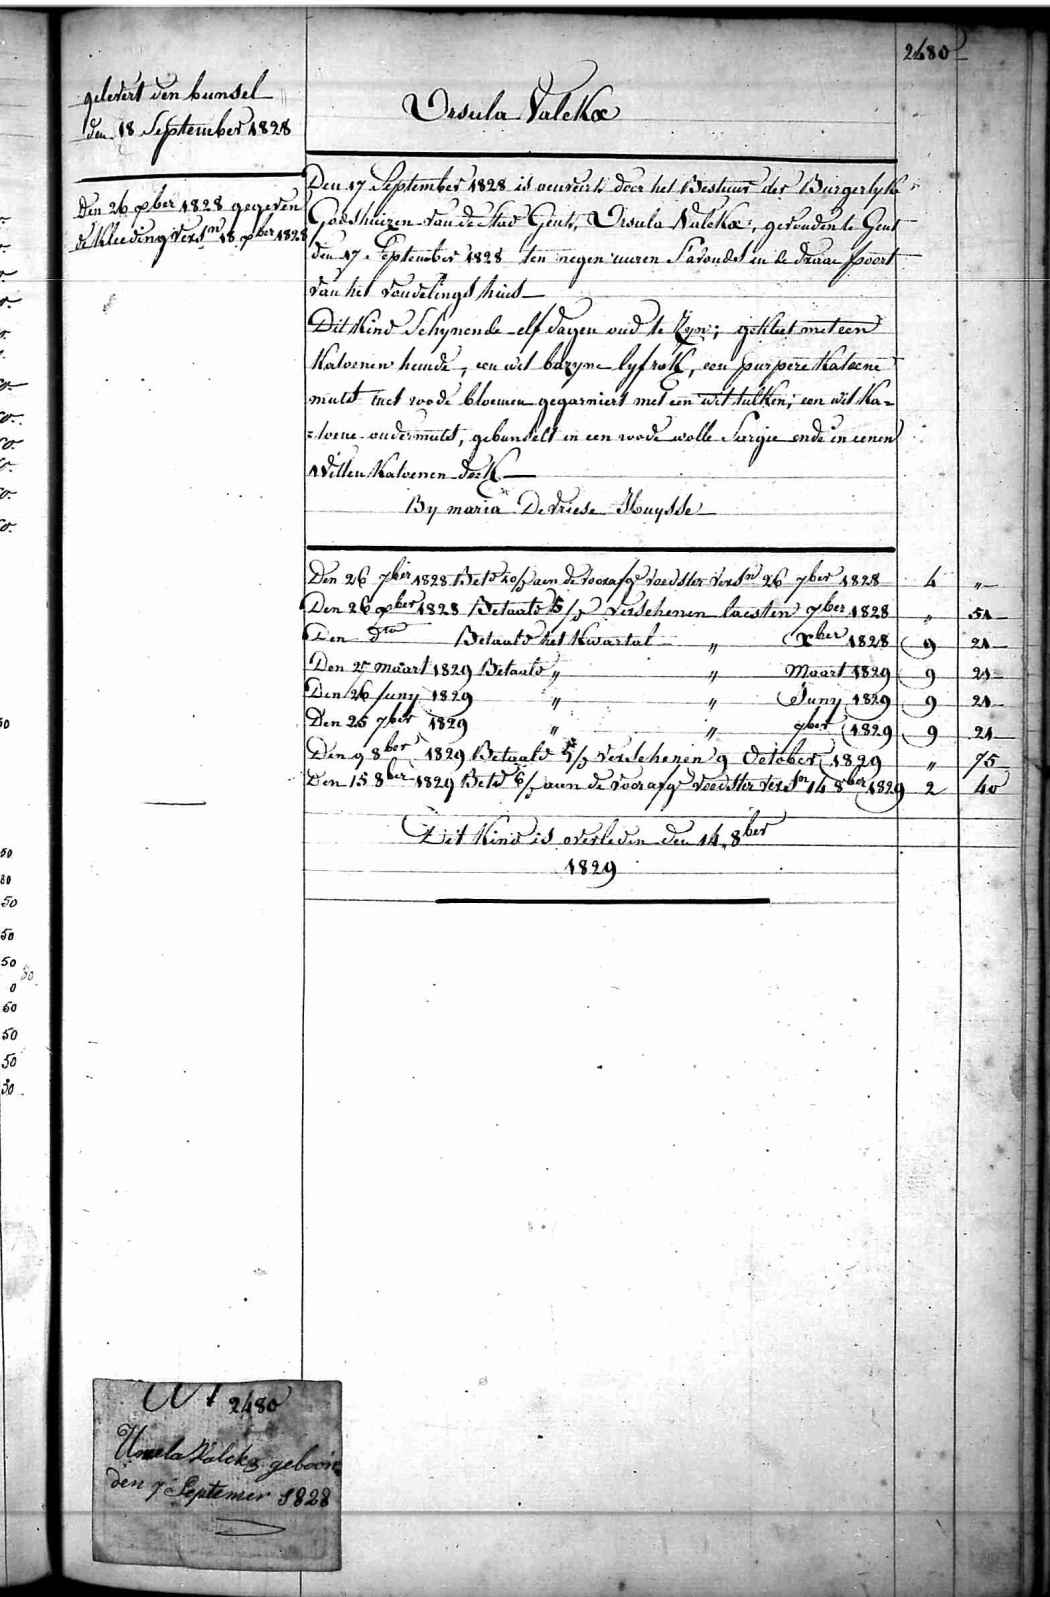 2480
gelevert den bunsel
den 18 September 1828
Den 26 xber 1828 gegeven
de kleeding vers.n 18 xber 1828
Ursula Valckx
Den 17 September 1828 is aenveirt door het Bestuur der Burgerlyke
Godshuizen van de Stad Gent, Ursula Valckx, gevonden te Gent
den 17 September 1828 ten negen uuren Savonds in de draai poort
van het vondelings huis
Dit Kind Schynende elf dagen oud te Zyn; gekleet met een
Katoenen hemde, een wit bazyne lyfrok, een purpere Katoene
muts met roode bloemen gegarniert met een wit tulken; een wit Ka=
=toene ondermuts, gebunselt in een roode wolle Sargie ende in eenen
Witten Katoenen doek
By maria De vriese Huysse
Den 26 7ber 1828 Betd 10/p aen de voorafge voedster vers.n 26 7ber 1828 4 "
Den 26 xber 1828 Betaald 5/p verschenen laesten 7ber 1828 " 51
Den dto Betaald het Kwartal " Xber 1828 9 21
Den 27 maart 1829 Betaald " " Maart 1829 9 21
Den 26 Juny 1829 " " Juny 1829 9 21
Den 25 7ber 1829 " " 7ber 1829 9 21
Den 9 8ber 1829 Betaald 5/p verschenen 9 October 1829 " 75
Den 15 8ber 1829 Betd 6/p aan de voorafge voedster vers.n 14 8ber 1829 2 40
Dit Kind is overleden den 14 8ber
1829
50
80
50
50
50
0
60
50
50
50
2480
Ursula Valckx geboore
den 7 Septemer 1828